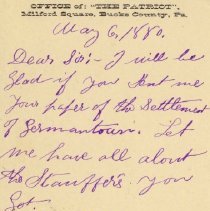 OFFICE of: "THE PATRIOT".
Milford Square, Bucks County, Pa.
May 6, 1880.
Dear Sir:- I will be
glad if you sent me
your paper of the Settlement
of Germantown. Let
me have all about
the Stauffers. You
Got.